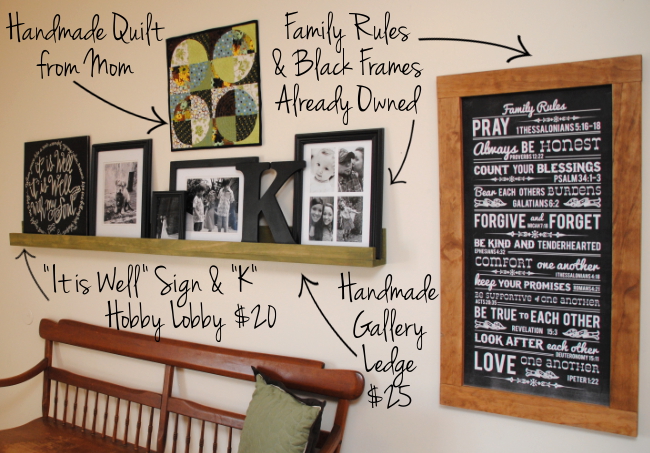 Handmade Quilt
from Mom
Family Rules
& Black Frames
Already Owned
It is Well
It is Well
with my Soul
K
"It is Well" Sign & "K"
Hobby Lobby $20
Handmade
Gallery
Ledge
$25
Family Rules
PRAY 1THESSALONIANS 5:16-18
Always BE HONEST
PROVERBS 12:22
COUNT YOUR BLESSINGS
PSALM 34:1-3
Bear EACH OTHERS BURDENS
GALATIANS 6:2
FORGIVE and FORGET
MICAH 7:18
BE KIND AND TENDERHEARTED
EPHESIANS 4:32
COMFORT one another
1THESSALONIANS 4:18
keep YOUR PROMISES ROMANS 4:21
BE SUPPORTIVE of ONE ANOTHER
ACTS
BE TRUE TO EACH OTHER
REVELATION 15:3
LOOK AFTER each other
DEUTERONOMY 15:11
LOVE one another
1PETER 1:22